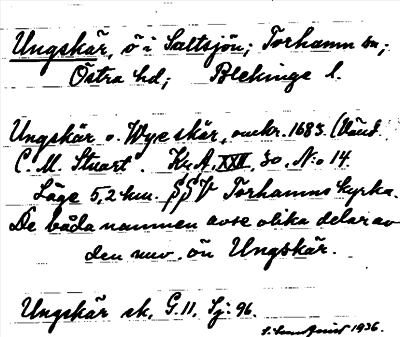 Ungskär, ö i Saltsjön; Torhamn sn;
Östra hd; Blekinge l.
Ungskär o. Wyeskär, omkr. 1683. (Känd
C. M. Stuart". Kr. A. XXII, 30, N:o 14.
Läge 5,2 km. SSV Torhamns kyrka.
De båda namnen avse olika delar av
den nuv. ön Ungskär.
Ungskär sk. G. 11. Sj: 96.
1936.